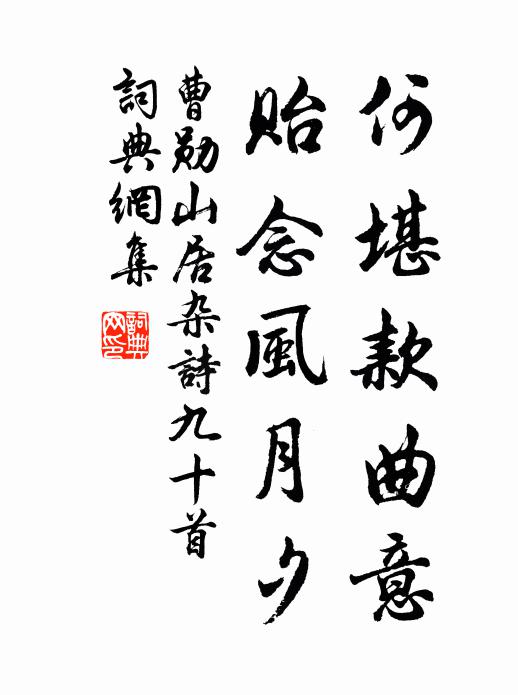 何堪款曲意
貽念風月夕
曹勛山居杂詩九十首
詞典網集
詞典
网印